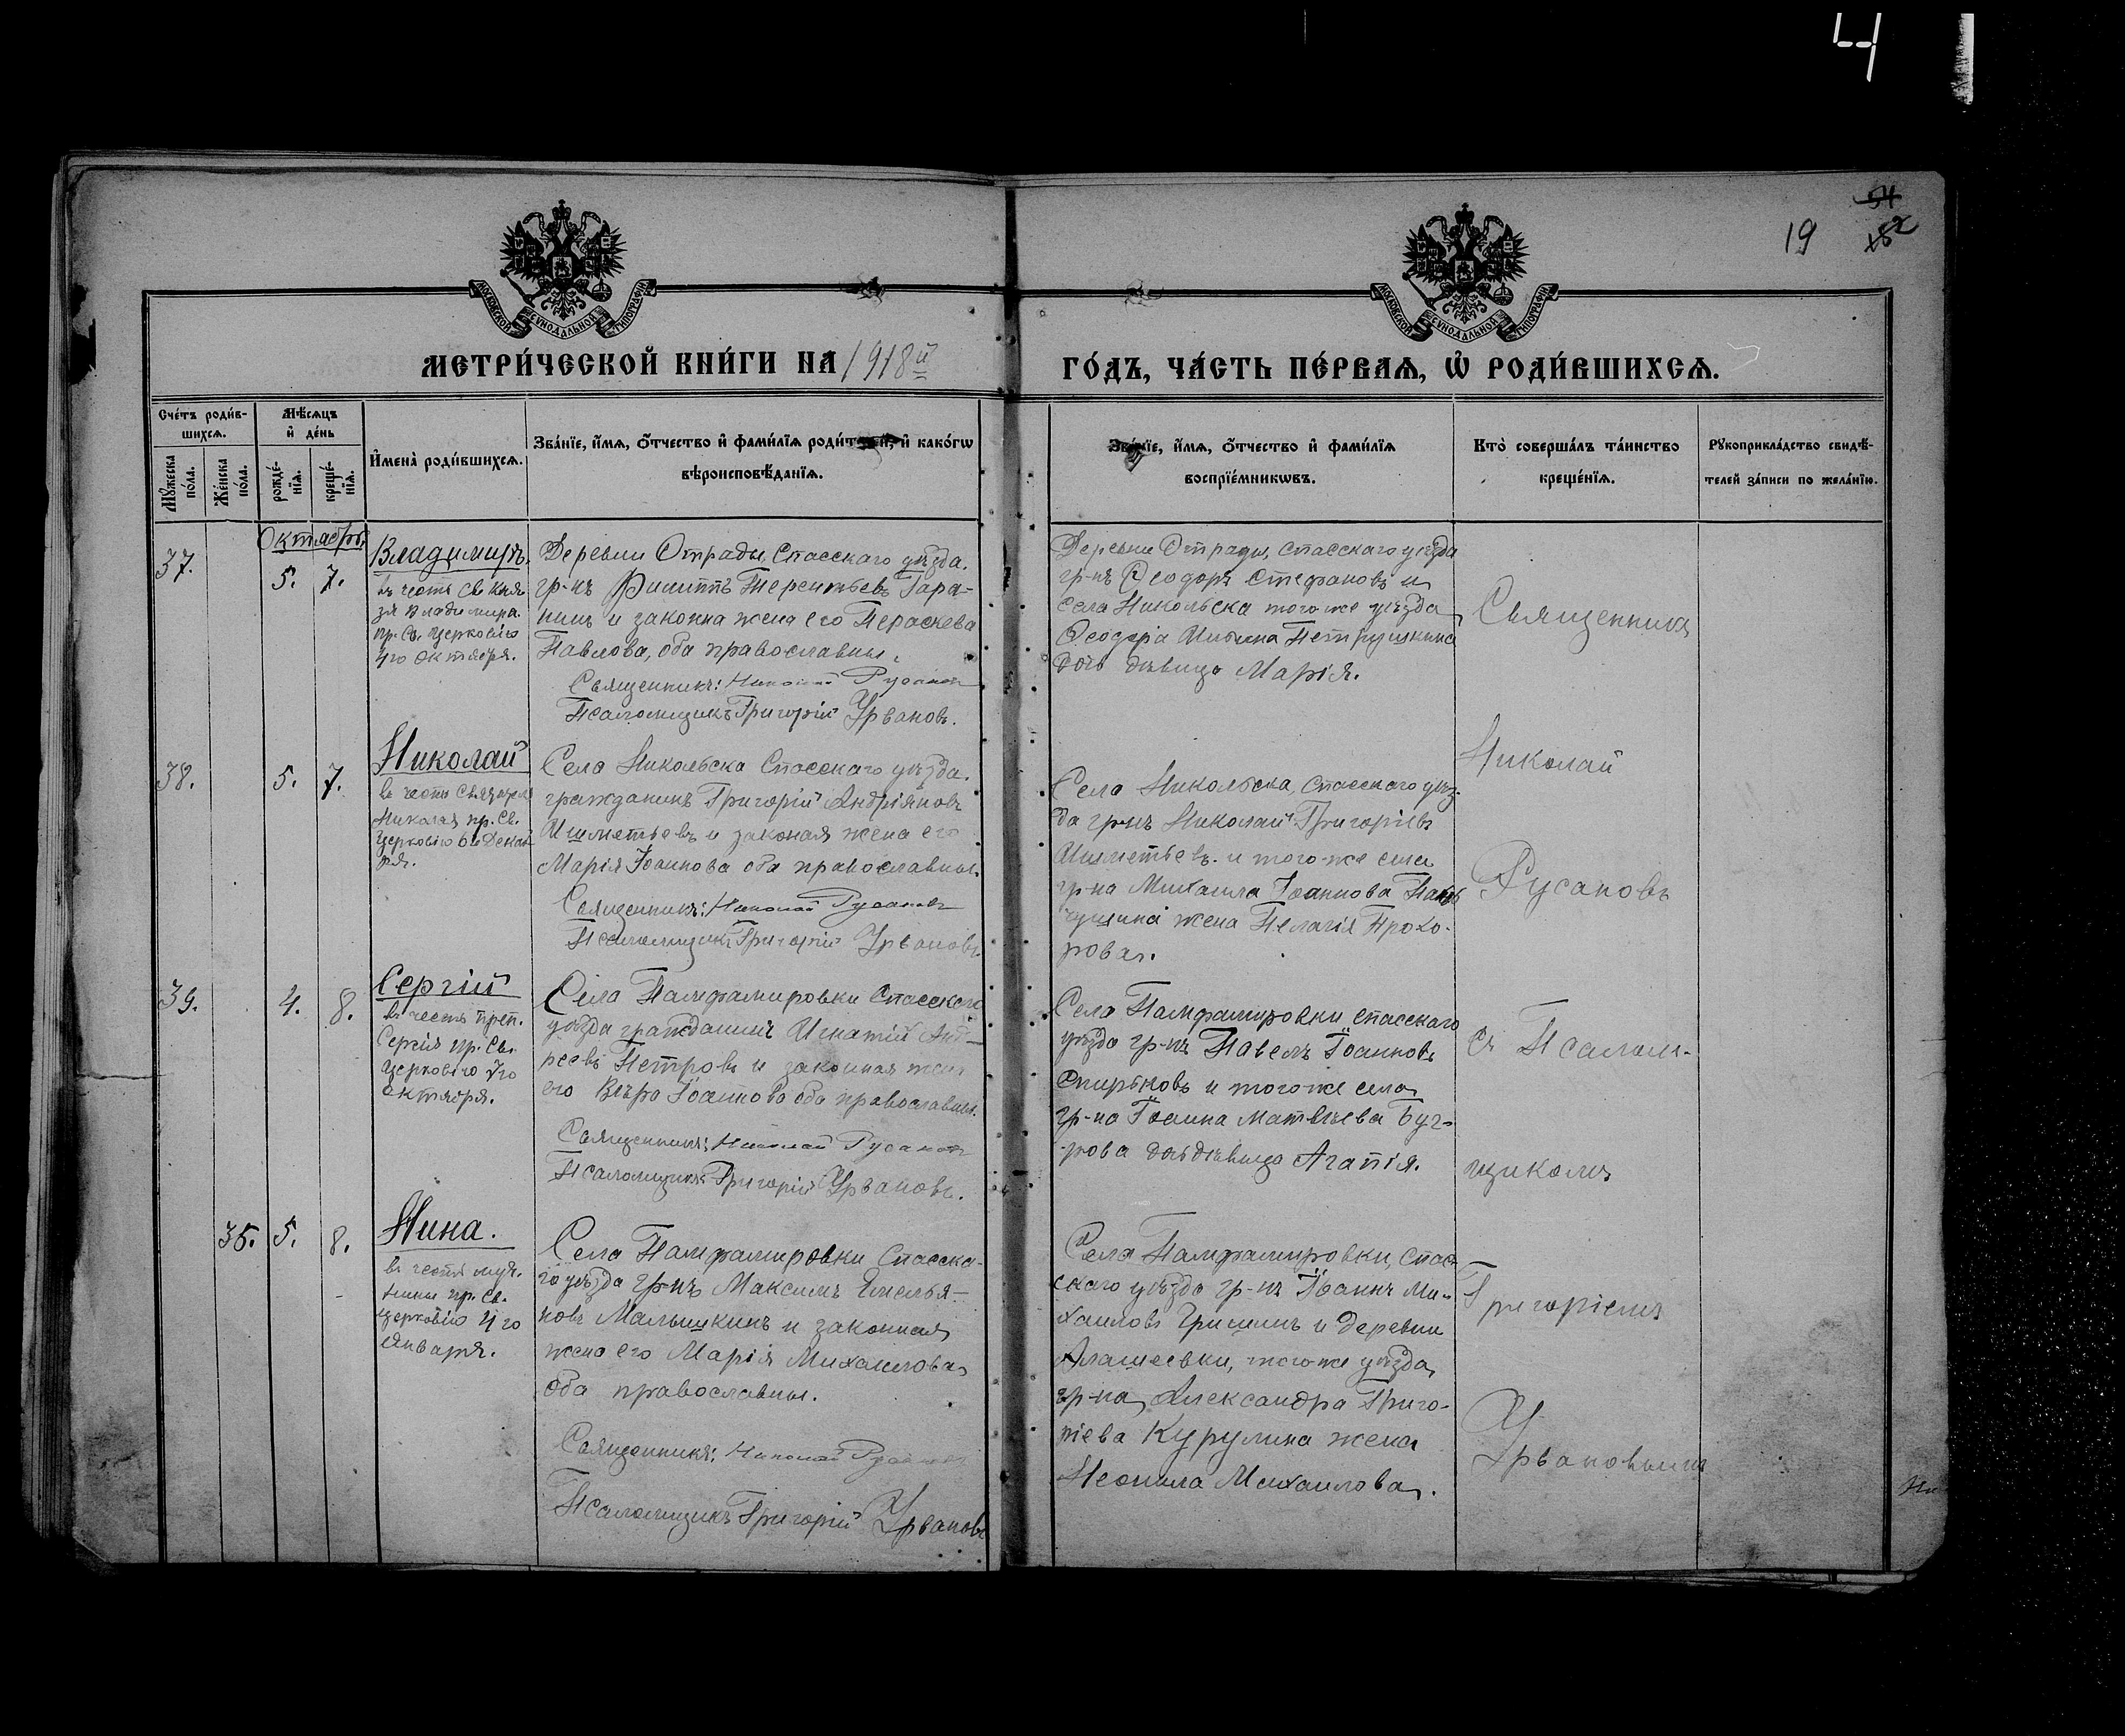 4
19
54
52
МОСКОВСКОЙ СѴНОДАЛЬНОЙ ТИПОГРАФІИ
МОСКОВСКОЙ СѴНОДАЛЬНОЙ ТИПОГРАФІИ
МЕТРИ́ЧЕСКОЙ КНИ́ГИ НА 1918й
ГО́ДЪ, ЧА́СТЬ ПЕ́РВАѦ, Ѡ҆ РОДИ́ВШИХСѦ.
Сче́тъ роди́в-
шихсѧ.
Мѣ́сѧцъ
и҆ де́нь
Мꙋ́жеска
по́ла.
Же́нска
по́ла.
рожде́-
нїѧ.
креще́-
нїѧ.
И҆мена̀ роди́вшихсѧ.
Зва́нїе, и҆́мѧ, ѻ҆́тчество и҆ фами́лїѧ роди́телей, и҆ како́гѡ
вѣроисповѣ́данїѧ.
Зва́нїе, и҆́мѧ, ѻ҆́тчество и҆ фами́лїѧ
воспрїе́мникѡвъ.
Кто̀ соверша́лъ та́инство
креще́нїѧ.
Рꙋкоприкла́дство свидѣ́-
телей за́писи по жела́нїю.
Октябрь
37.
5. 7.
Владимиръ.
въ честь св. Кня-
зя Владимира
пр. Св. Церковію
4го октября.
Деревни Отрады, Спасскаго уѣзда.
гр-нъ Филиппъ Терентьевъ Гара-
нинъ и законна жена его Параскева
Павлова, оба православны.
Священникъ: Николай Русановъ
Псаломщикъ Григорій Урвановъ.
Деревни Отрады, Спасскаго уѣзда
гр-нъ Ѳеодоръ Стефановъ и
села Никольска того же уѣзда
Ѳеодора Петрушкина
дочь дѣвица Марія.
38.
5. 7.
Николай
въ честь Святителя
Николая пр. Св.
Церковію 6го Декаб
ря.
Села Никольска Спасскаго уѣзда.
гражданинъ Григорій Андріяновъ
Ишметьевъ и законая жена его
Марія Іоаннова оба православны.
Священникъ: Николай Русановъ
Псаломщикъ Григорій Урвановъ.
Села Никольска, Спасскаго уѣз-
да гр-нъ Николай Григоріевъ
Ишметьевъ и того-же села
гр-на Михаила Іоаннова
жена Пелагія Прохо-
рова.
39.
4. 8.
Сергій
въ честь преп.
Сергія пр. Св.
Церковію 7го
октября.
Села Памфамировки Спасскаго
уѣзда гражданинъ Игнатій Анд-
реевъ Петровъ и законная жена
его Вѣра Іоаннова оба православны.
Священникъ: Николай Русановъ
Псаломщикъ Григорій Урвановъ.
Села Памфамировки Спасскаго
уѣзда гр-нъ Павелъ Іоанновъ
Спирьковъ и того-же села
гр-на Іоанна Матвѣева Буг-
рова дочь дѣвица Агапія.
35. 5. 8.
Нина.
въ честь муч.
Нины пр. Св.
Церковію 14го
января.
Села Памфамировки Спасска-
го уѣзда гр-нъ Максимъ Емелья-
новъ Малышкинъ и законная
жена его Марія Михаилова,
оба православны.
Священникъ: Николай Русановъ
Псаломщикъ Григорій Урвановъ
Села Памфамировки, Спас-
скаго уѣзда гр-нъ Іоаннъ Ми-
хаиловъ Гришинъ и деревни
Алашеевки, того-же уѣзда,
гр-на, Александра Григо-
ріева Курулина жена
Неонила Михаилова.
Священникъ
Николай
Русановъ
съ Псалом-
щикомъ
Григоріемъ
Урвановымъ